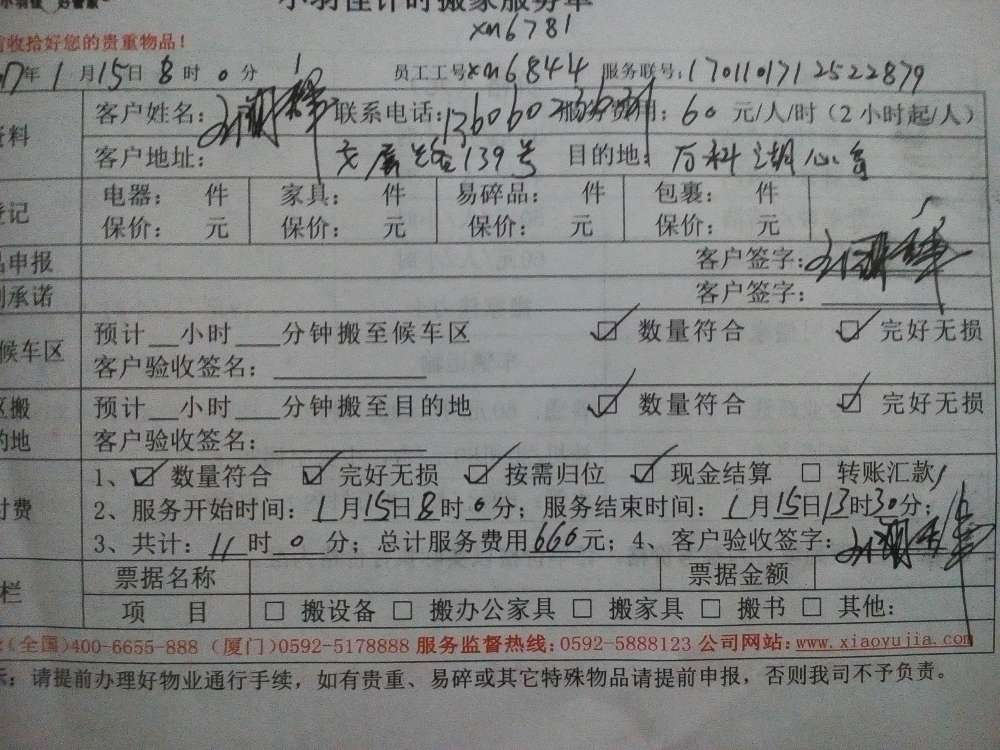 小羽佳计时搬家服务单
xm6781
前收拾好您的贵重物品!
17年1月15日8时0分 员工工号xm6844 服务联号:1701101712522879
资料 客户姓名: 联系电话: 服务费用:60元/人/时(2小时起/人)
客户地址: 139号 目的地: 万科湖心岛
登记 电器: 件 家具: 件 易碎品: 件 包裹: 件
保价: 元 保价: 元 保价: 元 保价: 元
品申报 客户签字:
承诺 客户签字:
候车区 预计__小时___分钟搬至候车区 ☑数量符合 ☑完好无损
客户验收签名:
区搬 预计__小时___分钟搬至目的地 ☑数量符合 ☑完好无损
的地 客户验收签名:
付费 1、☑数量符合 ☑完好无损 ☑按需归位 ☑现金结算 □转账汇款
2、服务开始时间:1月15日8时0分;服务结束时间:1月15日13时30分;
3、共计:11时0分;总计服务费用660元;4、客户验收签字:
栏 票据名称 票据金额
项 目 □搬设备 □搬办公家具 □搬家具 □搬书 □其他:
(全国)400-6655-888 (厦门)0592-5178888 服务监督热线:0592-5888123 公司网站:www.xiaoyujia.com
示:请提前办理好物业通行手续,如有贵重、易碎或其它特殊物品请提前申报,否则我司不予负责。